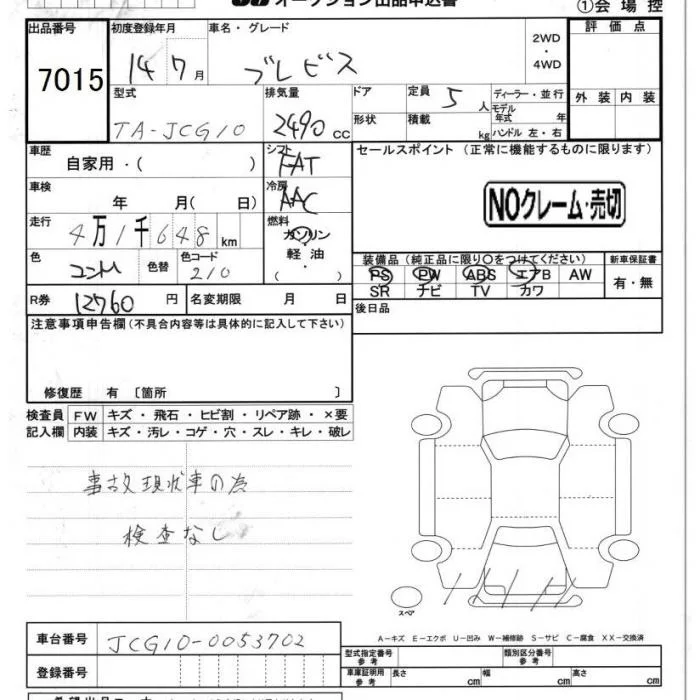 オークション出品申込書
①会場控
出品番号 7015
初度登録年月 14 7月
車名・グレード ブレビス
2WD・4WD
評価点
外装 内装
型式 TA-JCG10
排気量 2490cc
ドア
形状
定員 5人
積載 kg
ディーラー・並行
モデル年式 年
ハンドル 左・右
車歴 自家用・( )
シフト FAT
セールスポイント (正常に機能するものに限ります)
NOクレーム・売切
車検 年 月( 日)
冷房 AAC
走行 4万1千648km
燃料 ガソリン
軽油
( ・ )
色 色替 色コード 210
装備品 (純正品に限り〇をつけてください)
PS PW ABS エアB AW
SR ナビ TV カワ
新車保証書
有・無
R券 12760円
名変期限 月 日
後日品
注意事項申告欄(不具合内容等は具体的に記入して下さい)
修復歴 有 〔箇所 〕
検査員記入欄
FW キズ・飛石・ヒビ割・リペア跡・×要
内装 キズ・汚レ・コゲ・穴・スレ・キレ・破レ
事故現状車の為
検査なし
スペア
A-キズ E-エクボ U-凹み W-補修跡 S-サビ C-腐食 XX-交換済
車台番号 JCG10-0053702
登録番号
型式指定番号 参考
類別区分番号 参考
車庫証明用 参考 長さ cm 幅 cm 高さ cm